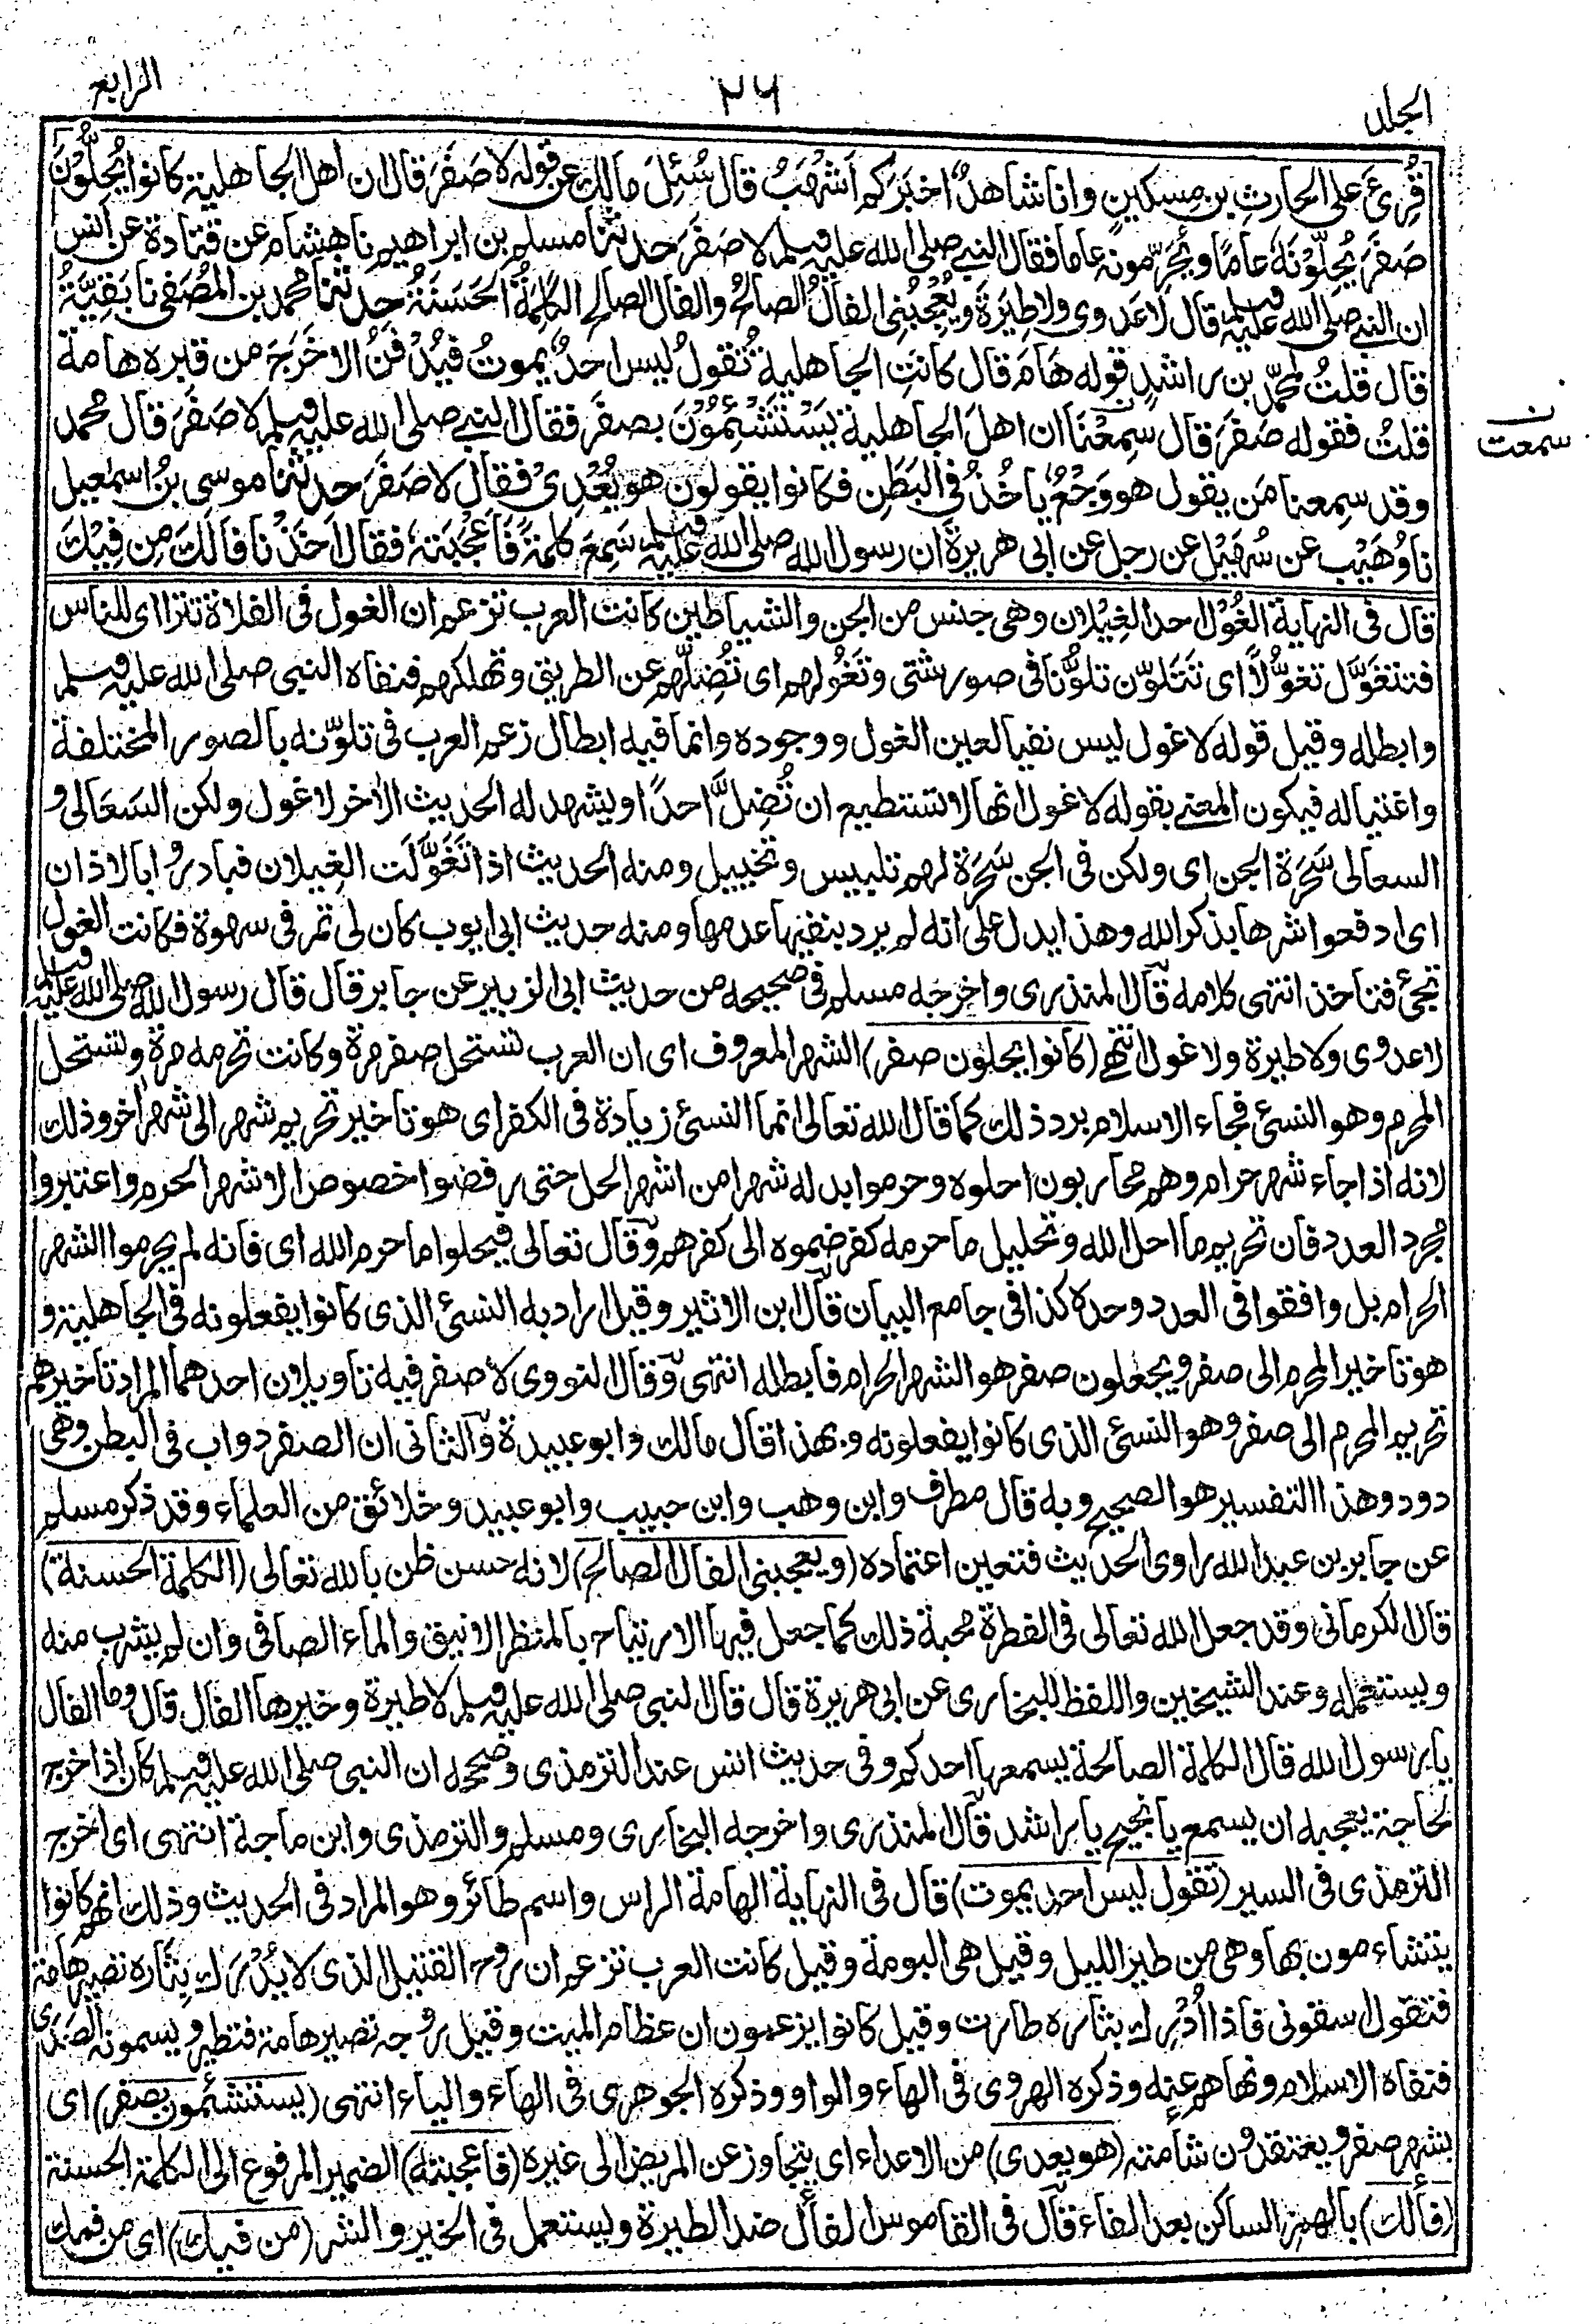 الجلد
٢٦
الرابع
قُرِئَ على الحارثِ بن مسكينٍ وانا شاهدٌ اخبَرَكم اَشْهَبُ قال سُئِلَ مالك عن قوله لا صَفَرَ قال ان اهل الجاهلية كانوا يُحِلُّوْنَ
صَفَرَ يُحِلّوْنَهٗ عامًا ويُحَرِّمونه عاما فقال النبي صلى الله عليه وسلم لا صَفَرَ حدثنا مسلم بن ابراهيم نا هشام عن قتادة عن انس
ان النبي صلى الله عليه وسلم قال لا عَدوى ولا طِيَرَةَ ويُعْجِبُنِى الفالُ الصالحُ والفال الصالح الكَلِمَةُ الحَسَنَةُ حدثنا محمد بن المُصَفى نا بَقِيَّةُ
قال قلتُ لمحمّد بن راشدٍ قوله هَامَ قال كانَتِ الجاهلية تُقولُ ليس احدٌ يموتُ فيُدْفَنُ الا خَرَجَ من قبره هامة
قلتُ فقوله صَفَرَ قال سمِعْنَا ان اهلَ الجاهلية يَسْتَشْئِمُوْنَ بصفَر فقال النبي صلى الله عليه وسلم لا صَفَرَ قال محمد
سمعت
وقد سمِعنا مَن يقول هو وَجْعٌ ياخُذُ فى البَطَنِ فكانوا يقولون هو يُعْدِىْ فقال لا صَفَرَ حدثنا موسى بنُ اسمٰعيل
نا وُهَيْب عن سُهَيْل عن رجل عن ابى هريرة ان رسول الله صلى الله عليه وسلم سَمِعَ كلمةً فَاَعْجَبَتْهٗ فقال اَخَذْنا فَالَكَ مِن فِيْكَ
قال فى النهاية الغُوْل احد الغِيْلان وهى جنس من الجن والشياطين كانت العرب تزعم ان الغول فى الفلاة تتراأى للناس
فتتغَوَّل تغوُّلًا اى تتَلوّن تلوُّنا فى صور شتى وتَغُولهم اى تُضِلّهم عن الطريق وتهلكهم فنفاه النبى صلى الله عليه وسلم
وابطله وقيل قوله لا غول ليس نفيا لعين الغول ووجوده وانما فيه ابطال زعم العرب فى تلوّنه بالصور المختلفة
واغتياله فيكون المعنى بقوله لا غول انها لا تستطيع ان تُضِلَّ احدًا ويشهد له الحديث الاٰخر لا غول ولكن السَعالى و
السعالى سَحَرَة الجن اى ولكن فى الجن سَحَرَة لهم تلبيس وتخييل ومنه الحديث اذا تَغَوَّلَت الغِيلان فبادرُوا بالاذان
اى ادفعوا شرها بذكر الله وهذا يدل على انه لم يرد بنفيها عدمها ومنه حديث ابى ايوب كان لى تمر فى سهوة فكانت الغول
تجئ فتاخذ انتهى كلامه قال المنذرى واخرجه مسلم فى صحيحه من حديث ابى الزبير عن جابر قال قال رسول الله صلى الله عليه وسلم
لا عدوى ولا طيرة ولا غول انتهى (كانوا يحلون صفر) الشهر المعروف اى ان العرب تستحل صفر مرة وكانت تحرمه مرة وتستحل
المحرم وهو النسئ فجاء الاسلام برد ذلك كما قال الله تعالى انما النسئ زيادة فى الكفر اى هو تاخير تحريم شهر الى شهر اٰخر وذلك
لانه اذا جاء شهر حرام وهم محاربون احلوه وحرموا بدله شهرا من اشهر الحل حتى رفضوا خصوص الاشهر الحرم واعتبروا
مجرد العدد فان تحريم ما احل الله وتحليل ما حرمه كفر ضموه الى كفرهم وقال تعالى فيحلوا ما حرم الله اى فانه لم يحرموا الشهر
الحرام بل وافقوا فى العدد وحده كذا فى جامع البيان قال ابن الاثير وقيل اراد به النسئ الذى كانوا يفعلونه فى الجاهلية و
هو تاخير المحرم الى صفر ويجعلون صفر هو الشهر الحرام فابطله انتهى وقال النووى لا صفر فيه تاويلان احدهما المراد تاخيرهم
تحريم المحرم الى صفر وهو النسئ الذى كانوا يفعلونه وبهذا قال مالك وابو عبيدة والثانى ان الصفر دواب فى البطن وهى
دود وهذا التفسير هو الصحيح وبه قال مطرف وابن وهب وابن حبيب وابو عبيد وخلائق من العلماء وقد ذكر مسلم
عن جابر بن عبد الله راوى الحديث فتعين اعتماده (ويعجبنى الفال الصالح) لانه حسن ظن بالله تعالى (الكلمة الحسنة)
قال الكرمانى وقد جعل الله تعالى فى الفطرة محبة ذلك كما جعل فيها الارتياح بالمنظر الانيق والماء الصافى وان لم يشرب منه
ويستعمله وعند الشيخين واللفظ للبخارى عن ابى هريرة قال قال النبى صلى الله عليه وسلم لا طيرة وخيرها الفال قال وما الفال
يا رسول الله قال الكلمة الصالحة يسمعها احدكم وفى حديث انس عند الترمذى وصححه ان النبى صلى الله عليه وسلم كان اذا خرج
لحاجة يعجبه ان يسمع يا نجيح يا راشد قال المنذرى واخرجه البخارى ومسلم والترمذى وابن ماجة انتهى اى اخرج
الترمذى فى السير (تقول ليس احد يموت) قال فى النهاية الهامة الراس واسم طائر وهو المراد فى الحديث وذلك انهم كانوا
يتشاءمون بها وهى من طير الليل وقيل هى البومة وقيل كانت العرب تزعم ان روح القتيل الذى لا يُدْرَك بِثَاره تصير هامة
فتقول اسقونى فاذا اُدْرِك بثاره طارت وقيل كانوا يزعمون ان عظام الميت وقيل روحه تصير هامة فتطير ويسمونه الصَدٰى
فنفاه الاسلام ونهاهم عنه وذكره الهروى فى الهاء والواو وذكره الجوهرى فى الهاء والياء انتهى (يستشئمون بصفر) اى
بشهر صفر ويعتقدون شامته (هو يعدى) من الاعداء اى يتجاوز عن المريض الى غيره (فاعجبته) الضمير المرفوع الى الكلمة الحسنة
(فألك) بالهمز الساكن بعد الفاء قال فى القاموس الفأل ضد الطيرة ويستعمل فى الخير والشر (من فيك) اى من فمك